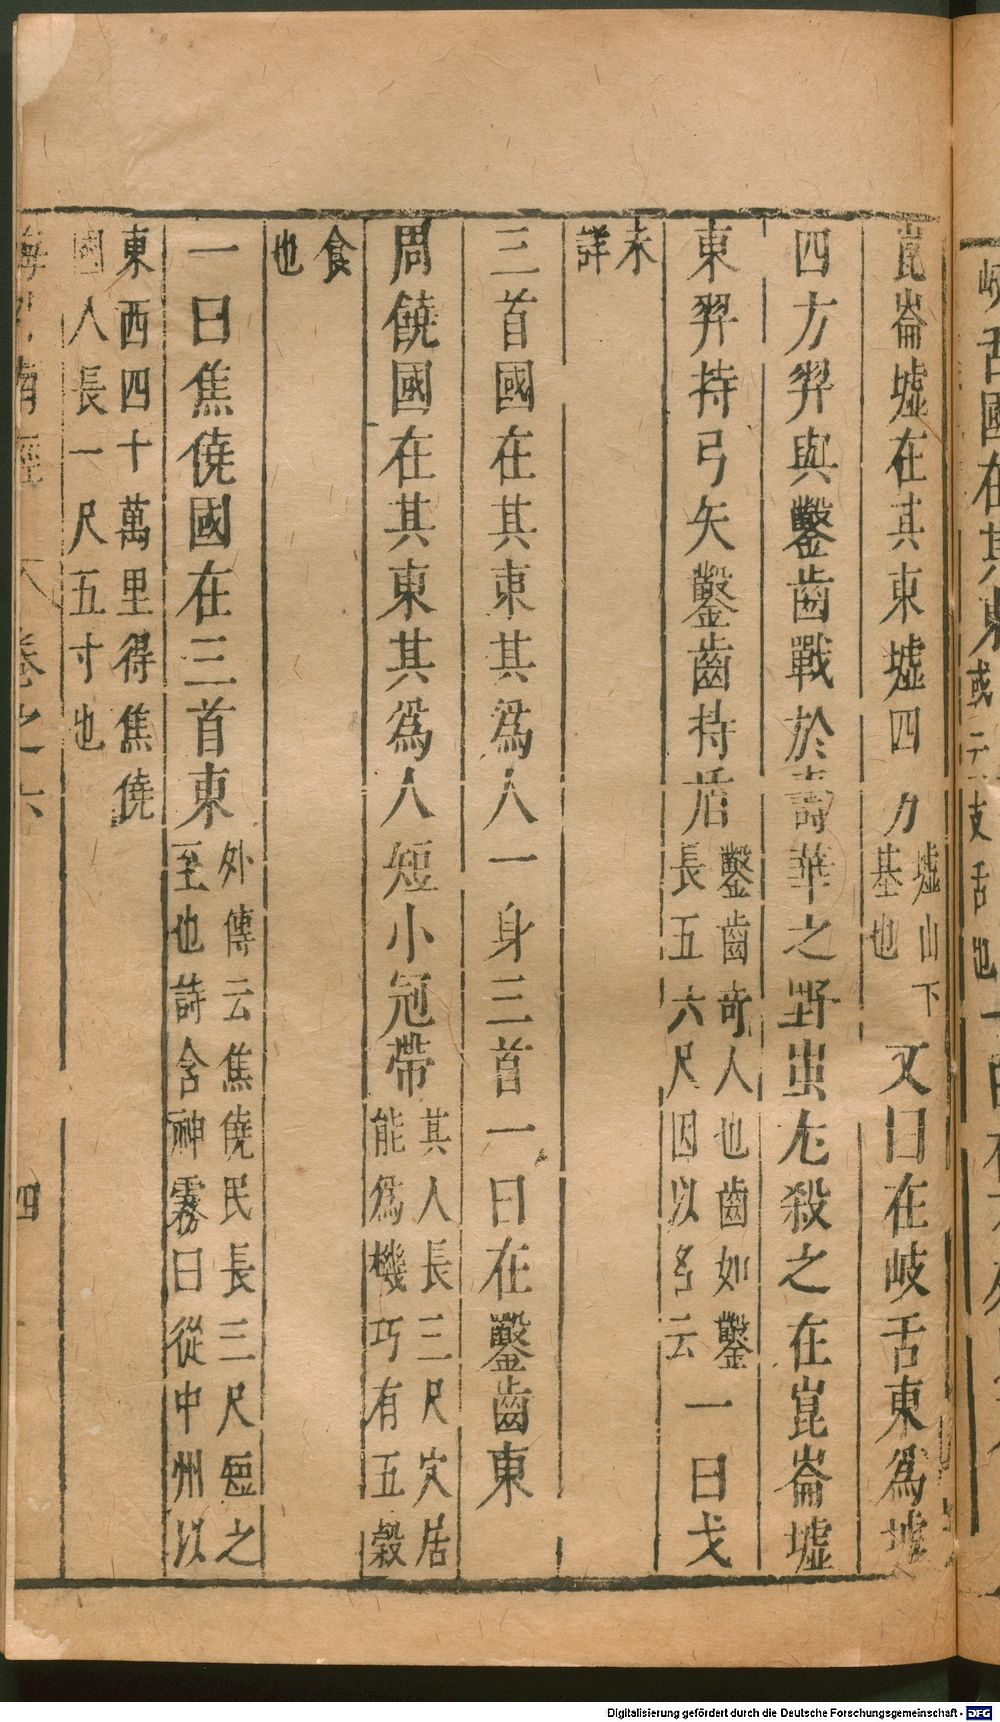 岐舌國在其東
或云支舌也
崑崙墟在其東墟四方
墟山下
基也
又曰在岐舌東爲墟
四方羿與鑿齒戰於壽華之野蚩尤殺之在崑崙墟
東羿持弓矢鑿齒持盾
鑿齒奇人也齒如鑿
長五六尺因以名云
一曰戈
未
詳
三首國在其東其爲人一身三首一曰在鑿齒東
周饒國在其東其爲人短小冠帶
其人長三尺穴居
能爲機巧有五穀
食
也
一曰焦僥國在三首東
外傳云焦僥民長三尺短之
至也詩含神霧曰從中州以
東西四十萬里得焦僥
國人長一尺五寸也
海外南經 卷之六 四
Digitalisierung gefördert durch die Deutsche Forschungsgemeinschaft - DFG